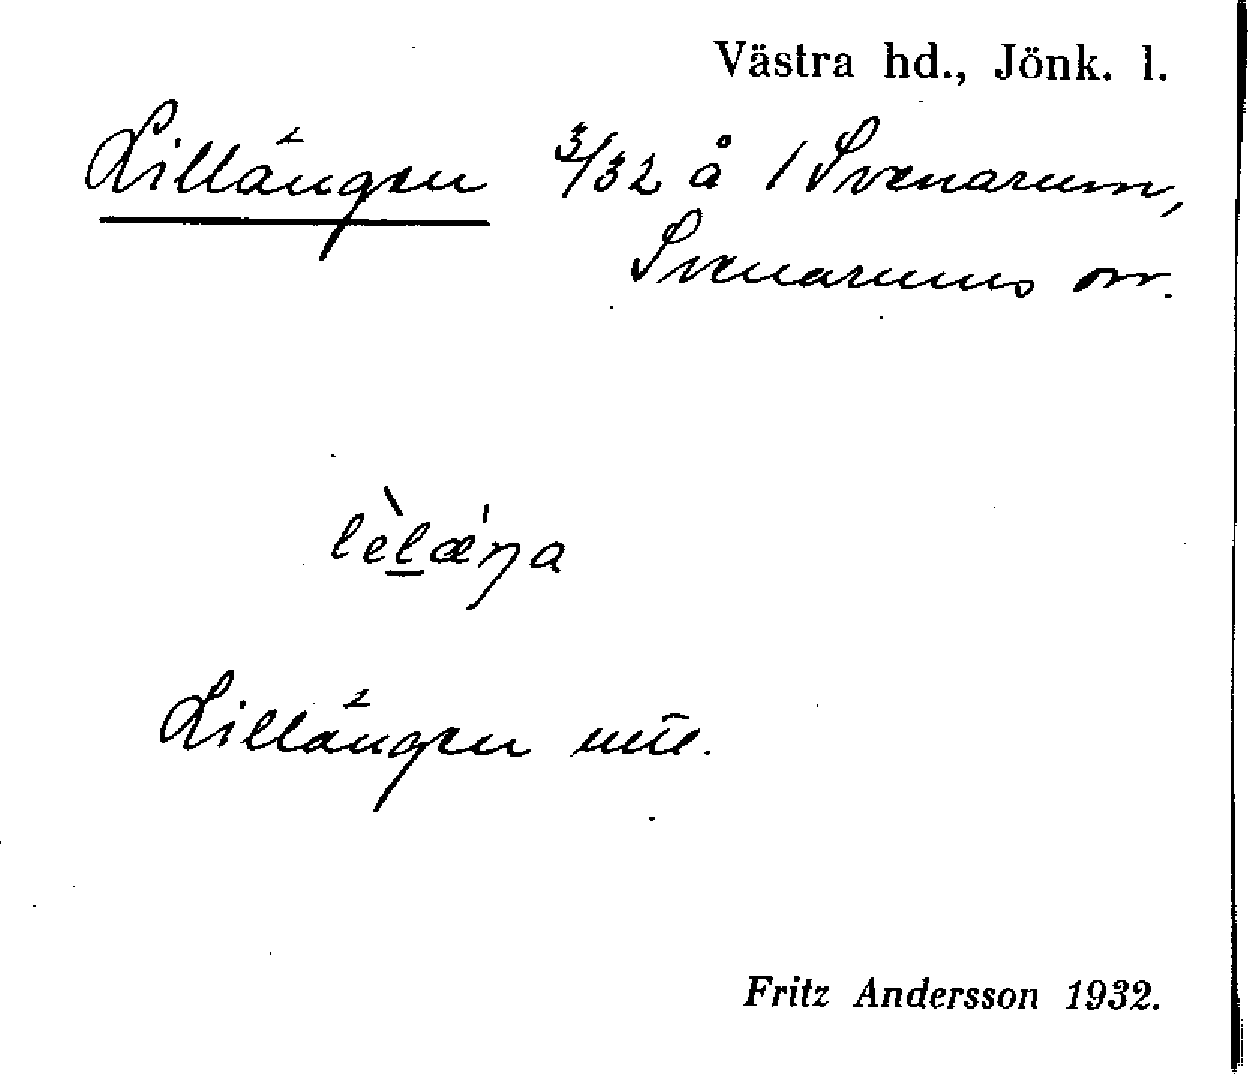 Västra hd., Jönk. l.
Lillängen 3/32 å 1 Svenarum,
Svenarums sn.
lèlæ'ŋa
Lillängen
Fritz Andersson 1932.